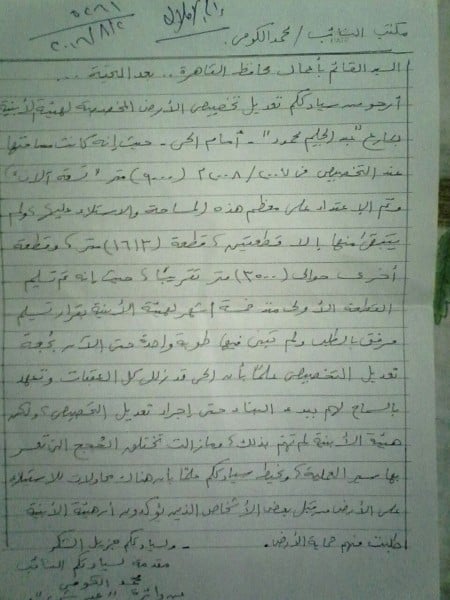 ٥٢٦١
٢٠١٦/٨/٢
مكتب النائب / محمد الكومى.
السيد القائم بأعمال محافظ القاهرة .. بعد التحية ...
أرجو من سيادتكم تعديل تخصيص الأرض المخصصة لهيئة الأبنية
بشارع "عبد الحليم محمود" - أمام الحى - حيث إنه كانت مساحتها
عند التخصيص فى ٢٠٠٧ / ٢٠٠٨ (٩٠٠٠) متر "تسعة آلاف"
وتم الإعتداء على معظم هذه المساحة والاستيلاء عليها، ولم
يتبقى منها إلا قطعتين، قطعة (١٦١٣) متر، وقطعة
أخرى حوالى (٣٥٠٠) متر تقريبًا، حيث إنه تم تسليم
القطعة الأولى منذ خمسة أشهر لهيئة الأبنية بقرار تسليم
مرفق بالطلب ولم تبنى فيها طوبة واحدة حتى الآن بحجة
تعديل التخصيص علمًا بأن الحى قد ذلل كل العقبات وتعهد
بالسماح لهم ببدء البناء حتى إجراء تعديل التخصيص، ولكن
هيئة الأبنية لم تهتم بذلك، ومازالت تختلق الحجج التى تعسر
بها سير العملية، ونحيط سيادتكم علمًا بأن هناك محاولات للاستيلاء
على الأرض من قبل بعض الأشخاص الذين يؤكدون أن هيئة الأبنية
طلبت منهم حماية الأرض. - ولسيادتكم جزيل الشكر
مقدمه لسيادتكم النائب
محمد الكومى
عن دائرة "عين شمس"